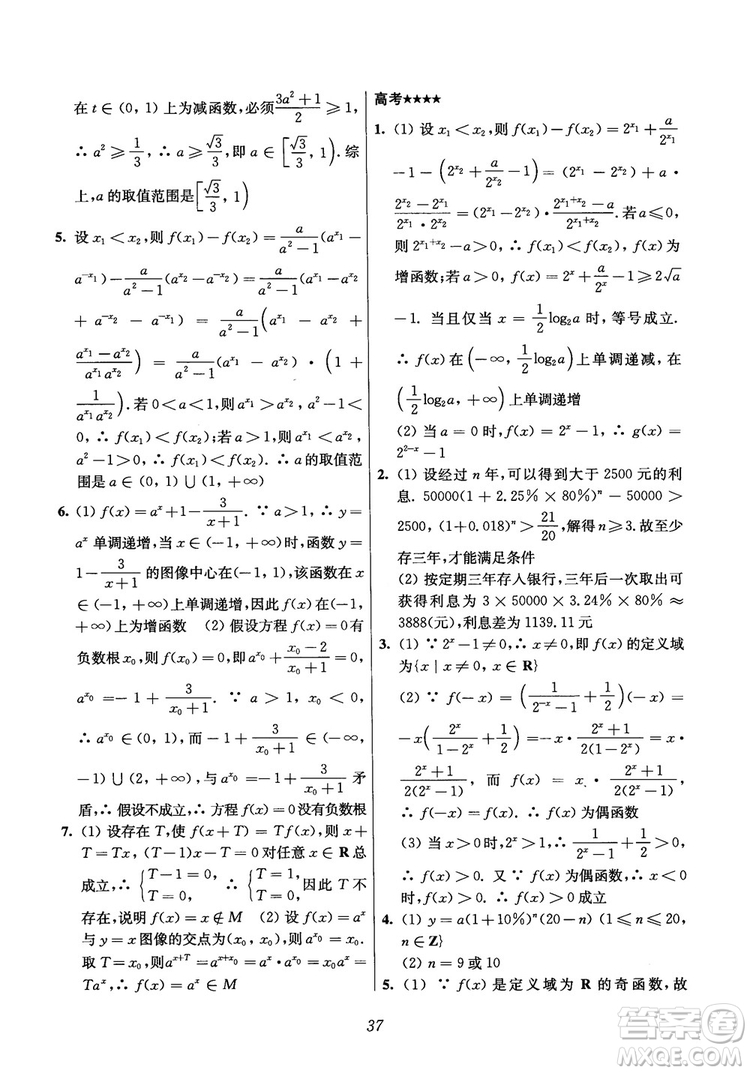 在 t∈(0, 1) 上为减函数, 必须 (3a²+1)/2 ≥ 1,
∴ a² ≥ 1/3 ∴ a ≥ √3/3, 即 a∈[√3/3, 1). 综
上, a 的取值范围是[√3/3, 1)
5. 设 x₁<x₂, 则 f(x₁)-f(x₂) = a/(a²-1) (a^x₁-
a^-x₁) - a/(a²-1) (a^x₂-a^-x₂) = a/(a²-1) (a^x₁-a^x₂
+ a^-x₂ - a^-x₁) = a/(a²-1) (a^x₁ - a^x₂ +
(a^x₁-a^x₂)/(a^x₁a^x₂)) = a/(a²-1) (a^x₁ - a^x₂) · (1 +
1/(a^x₁a^x₂)). 若 0<a<1, 则 a^x₁>a^x₂, a²-1<
0, ∴ f(x₁)<f(x₂) 若 a>1, 则 a^x₁<a^x₂,
a²-1>0, ∴ f(x₁)<f(x₂). ∴ a 的取值范
围是 a∈(0, 1)∪(1, +∞)
6. (1) f(x)=a^x+1-3/(x+1). ∵ a>1, ∴ y=
a^x 单调递增, 当 x∈(-1, +∞)时, 函数 y=
1-3/(x+1) 的图像中心在(-1, 1), 该函数在 x∈
(-1, +∞)上单调递增, 因此 f(x)在(-1,
+∞)上为增函数 (2) 假设方程 f(x)=0 有
负数根 x₀, 则 f(x₀)=0, 即 a^x₀+(x₀-2)/(x₀+1)=0,
a^x₀ = -1 + 3/(x₀+1). ∵ a > 1, x₀ < 0,
∴ a^x₀∈(0, 1), 而 -1+3/(x₀+1)∈(-∞,
-1)∪(2, +∞), 与 a^x₀ = -1+3/(x₀+1) 矛
盾, ∴ 假设不成立, ∴ 方程 f(x)=0 没有负数根
7. (1) 设存在 T, 使 f(x+T)=Tf(x), 则 x+
T=Tx, (T-1)x-T=0 对任意 x∈R 总
成立, ∴ {T-1=0, T=0, ∴ {T=1, T=0, 因此 T 不
存在, 说明 f(x)=x∉M (2) 设 f(x)=a^x
与 y=x 图像的交点为(x₀, x₀), ∴ a^x₀=x₀.
取 T=x₀, 则 a^(x+T)=a^(x+x₀)=a^x·a^x₀=x₀a^x=
Ta^x, ∴ f(x)=a^x∈M
高考★★★★
1. (1) 设 x₁<x₂, 则 f(x₁)-f(x₂)=2^x₁+a/2^x₁
-1-(2^x₂+a/2^x₂-1) = (2^x₁-2^x₂)+a·
(2^x₂-2^x₁)/(2^x₁·2^x₂)=(2^x₁-2^x₂)·(2^(x₁+x₂)-a)/(2^x₁·2^x₂). 若 a≤0,
则 2^(x₁+x₂)>0, ∴ f(x₁)<f(x₂), ∴ f(x)为
增函数; 若 a>0, f(x)=2^x+a/2^x-1≥2√a
-1. 当且仅当 x = 1/2 log₂a 时, 等号成立.
∴ f(x)在(-∞, 1/2 log₂a)上单调递减, 在
(1/2 log₂a, +∞)上单调递增
(2) 当 a=0 时, f(x)=2^x-1, ∴ g(x)=
2^(2-x)-1
2. (1) 设经过 n 年, 可以得到大于 2500 元的利
息. 50000(1+2.25%×80%)ⁿ-50000>
2500, (1+0.018)ⁿ>21/20, 解得 n≥3. 故至少
存三年, 才能满足条件
(2) 按定期三年存入银行, 三年后一次取出可
获得利息为 3×50000×3.24%×80%≈
3888(元), 利息差为 1139.11 元
3. (1) ∵ 2^x-1≠0, ∴ x≠0, 即 f(x)的定义域
为{x | x≠0, x∈R}
(2) ∵ f(-x) = (1/(2^-x-1)+1/2)(-x) =
-x(2^x/(1-2^x)+1/2) = -x·(2^x+1)/(2(1-2^x)) = x·
(2^x+1)/(2(2^x-1)), 而 f(x) = x·(2^x+1)/(2(2^x-1)),
∴ f(-x)=f(x). ∴ f(x)为偶函数
(3) 当 x>0 时, 2^x>1, ∴ 1/(2^x-1)+1/2>0,
∴ f(x)>0. 又 ∵ f(x)为偶函数, ∴ x<0
时, f(x)>0, ∴ f(x)>0 成立
4. (1) y=a(1+10%)ⁿ(20-n) (1≤n≤20,
n∈Z}
(2) n=9 或 10
5. (1) ∵ f(x) 是定义域为 R 的奇函数, 故
37
答案卷
MXQE.COM